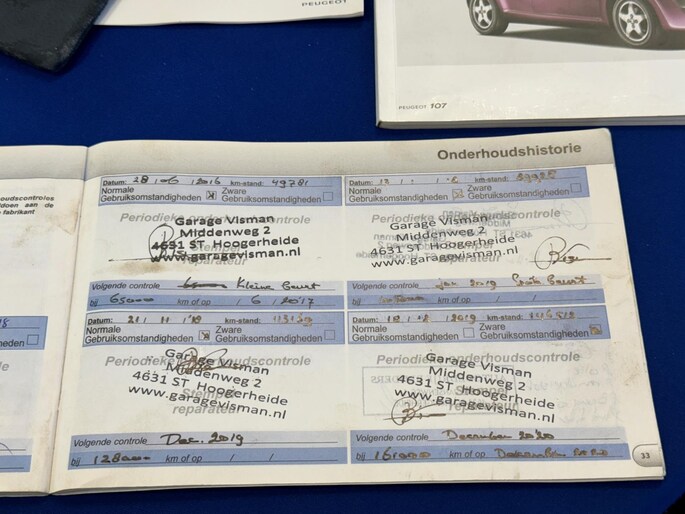 PEUGEOT
PEUGEOT 107
Onderhoudshistorie
oudscontroles
ddoen aan de
fabrikant
Datum: 28 / 06 / 2016 km-stand: 49781
Normale Gebruiksomstandigheden
Zware Gebruiksomstandigheden
Periodieke onderhoudscontrole
Stempel reparateur
Garage Visman
Middenweg 2
4631 ST Hoogerheide
www.garagevisman.nl
Volgende controle Kleine Beurt
bij 65000 km of op / 6 / 2017
Datum: km-stand:
Normale Gebruiksomstandigheden
Zware Gebruiksomstandigheden
Periodieke onderhoudscontrole
reparateur
Garage Visman
Middenweg 2
4631 ST Hoogerheide
www.garagevisman.nl
Volgende controle jan 2019 Beurt
bij km of op / /
Datum: 21 / 11 / '18 km-stand:
Normale Gebruiksomstandigheden
Zware Gebruiksomstandigheden
Periodieke onderhoudscontrole
Stempel reparateur
Garage Visman
Middenweg 2
4631 ST Hoogerheide
www.garagevisman.nl
Volgende controle Dec. 2019
bij 128000 km of op / /
Datum: 2019 km-stand:
Normale Gebruiksomstandigheden
Zware Gebruiksomstandigheden
Periodieke onderhoudscontrole
Stempel reparateur
Garage Visman
Middenweg 2
4631 ST Hoogerheide
www.garagevisman.nl
Volgende controle December 2020
bij 161000 km of op December
33